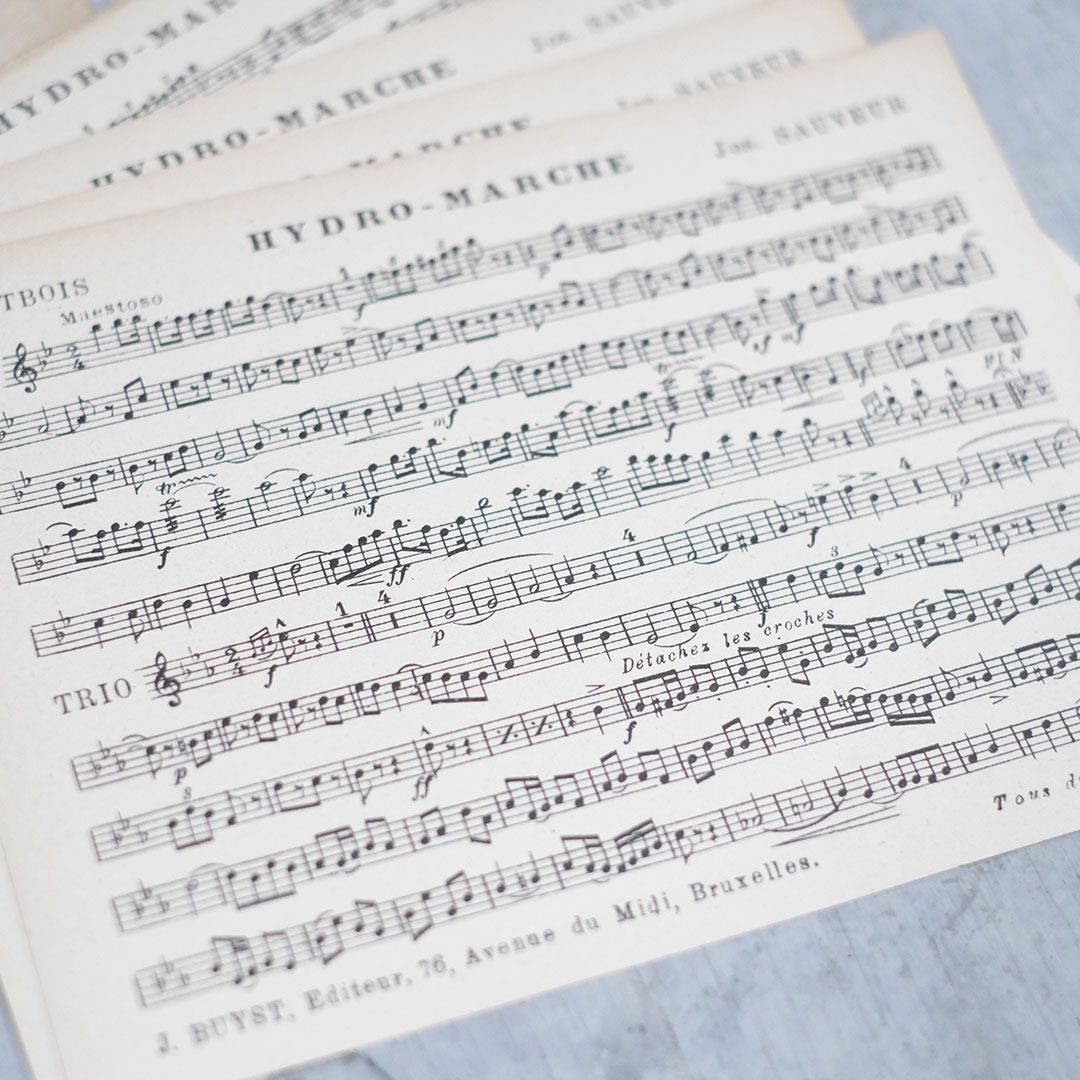 HYDRO-MAR
HYDRO-MARCHE
Jos. SAUVEUR
MARCHE
SAUVEUR
HYDRO-MARCHE
Jos. SAUVEUR
TBOIS
Maestoso
2
4
1
f
p
mf
sf mf
tr
f
mf
f
FIN
ff
4
f
4
p
TRIO
2
4
f
1
4
p
3
f
Détachez les croches
p
ff
f
3
Tous d
J. BUYST, Editeur, 76, Avenue du Midi, Bruxelles.